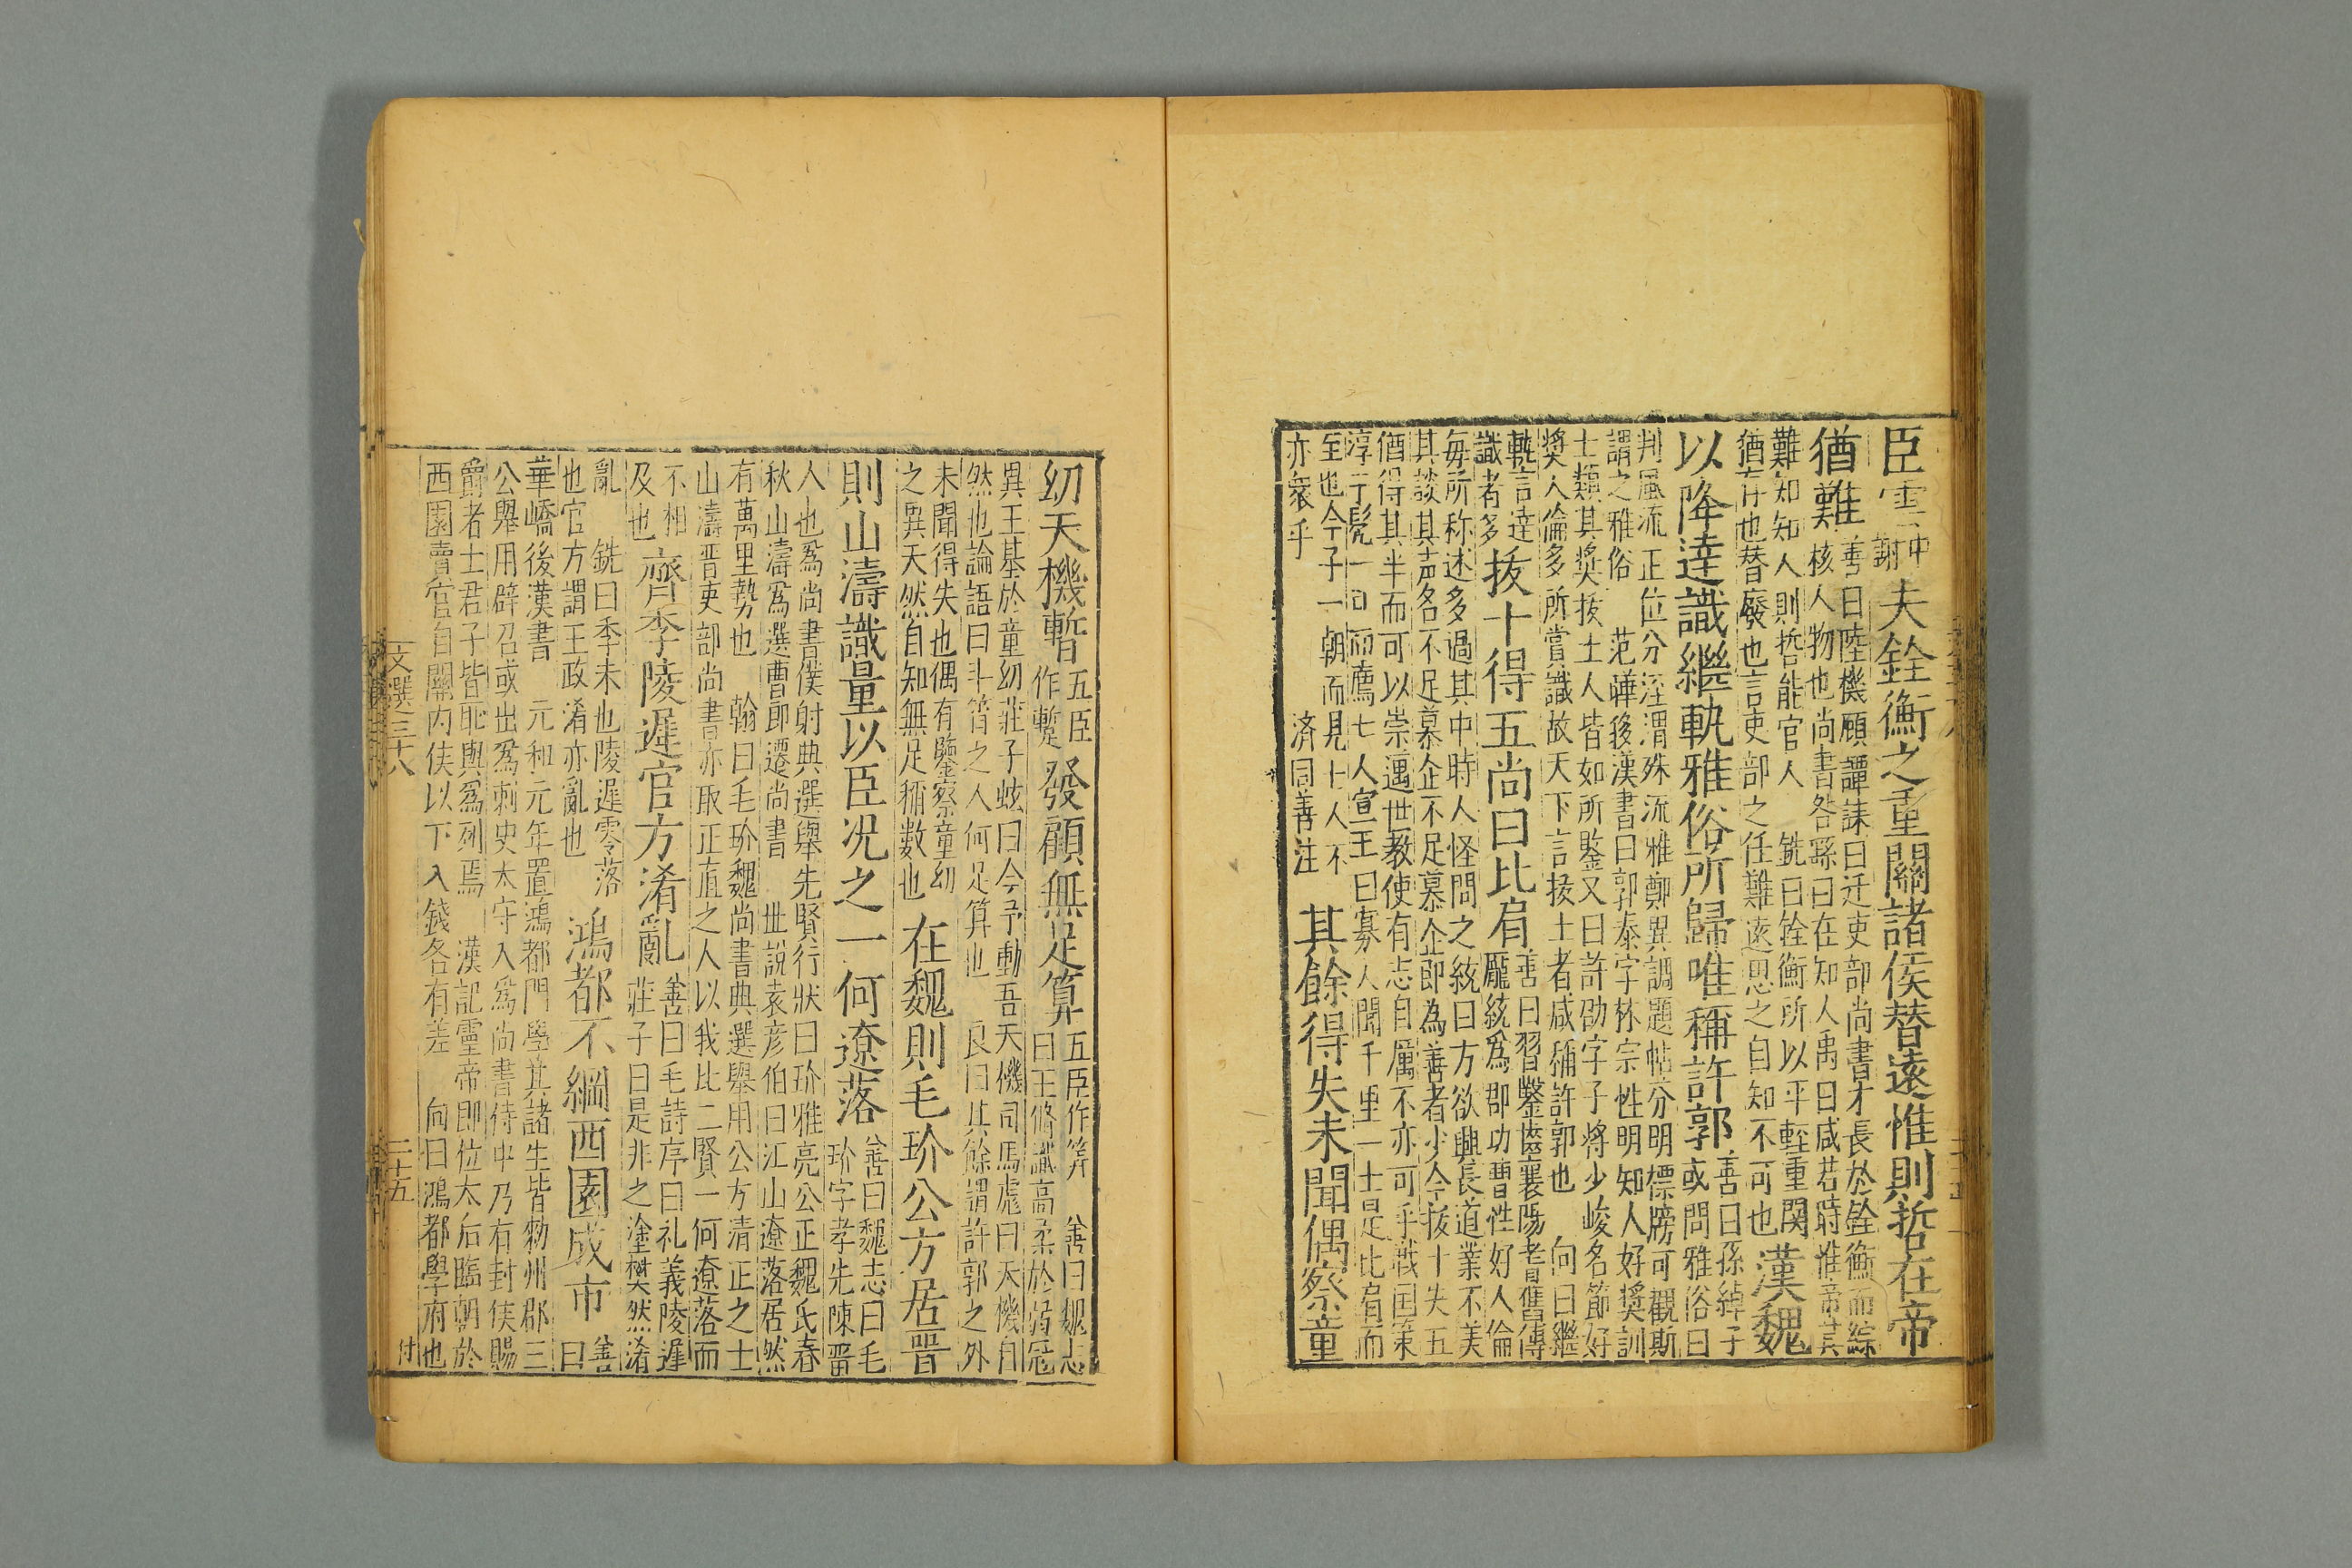 臣雲中謝夫銓衡之重關諸侯替遠惟則哲在帝
猶難善曰陸機顧譚誄曰迁吏部尚書才長於銓衡而綜核人物也尚書咎繇曰在知人禹曰咸若時惟帝其
難知知人則哲能官人 銑曰銓衡所以平輕重関猶存也替廢也言吏部之任難遠思之自知不可也漢魏
以降逹識繼軌雅俗所歸唯稱許郭善曰孫綽子或問雅俗曰
判風流正位分涇渭殊流雅鄭異調題帖分明標牓可觀斯謂之雅俗 范曄後漢書曰郭泰字林宗性明知人好奨訓
士類其奨拔士人皆如所鑒又曰許劭字子將少峻名節好奨人倫多所賞識故天下言拔士者咸稱許郭也 向曰繼
軌言逹識者多拔十得五尚曰比肩善曰習鑿齒襄陽耆舊傳龎統爲郡功曹性好人倫
每所称述多過其中時人怪問之統曰方欲興長道業不美其談其声名不足慕企不足慕企即為善者少今拔十失五
猶得其半而可以崇邁世教使有志自厲不亦可乎戰国策淳于髡一日而薦七人宣王曰寡人聞千里一士是比肩而
至也今子一朝而見七人不亦衆乎 済同善注其餘得失未聞偶察童
幼天機暫五臣作蹔發顧無足算五臣作筭 善曰魏志曰王脩識高柔於弱冠
異王基於童幼莊子蚿曰今予動吾天機司馬彪曰天機自然也論語曰斗筲之人何足算也 良曰其餘謂許郭之外
未聞得失也偶有鑒察童幼之異天然自知無足稱數也在魏則毛玠公方居晋
則山濤識量以臣况之一何遼落善曰魏志曰毛玠字孝先陳畱
人也爲尚書僕射典選舉先賢行狀曰玠雅亮公正魏氏春秋山濤爲選曹郎遷尚書 世説袁彦伯曰江山遼落居然
有萬里勢也 翰曰毛玠魏尚書典選舉用公方清正之士山濤晋吏部尚書亦取正直之人以我比二賢一何遼落而
不相及也齊季陵遲官方淆亂善曰毛詩序曰礼義陵遲莊子曰是非之塗樊然淆
亂 銑曰季末也陵遲零落也官方謂王政淆亦亂也鴻都不綱西園成市善曰
華嶠後漢書 元和元年置鴻都門學其諸生皆勑州郡三公舉用辟召或出爲刺史太守入爲尚書侍中乃有封侯賜
爵者士君子皆恥與爲列焉 漢記靈帝即位太后臨朝於西園賣官自關内侯以下入錢各有差 向曰鴻都學府也
文選三十八
二十五
付